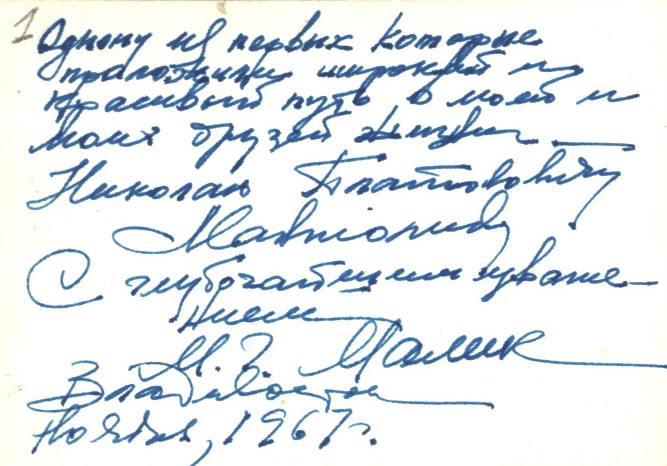 1
Одному из первых которые
проложили широкий и
красивый путь в моей и
моих друзей жизни —
Николаю Платоновичу
С глубочайшим уваже-
нием
М. Малик
Владивосток
Ноябрь, 1967 г.